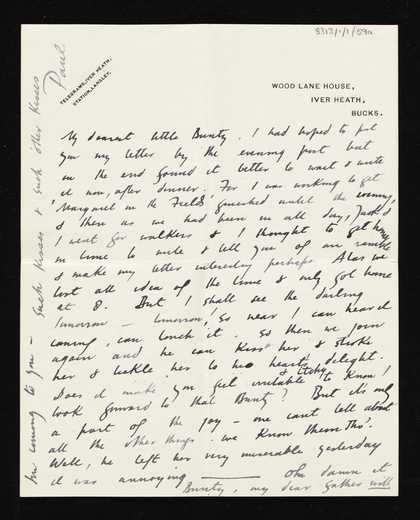 8313/1/1/59a
TELEGRAMS, IVER HEATH.
STATION, LANGLEY.
WOOD LANE HOUSE,
IVER HEATH,
BUCKS.
My dearest little Bunty. I had hoped to put
you my letter by the evening post but
in the end found it better to wait & write
it now, after dinner. For I was working to get
'Margaret in the Fields' finished until the evening,
& then as we had been in all day, Jack &
I went for walkers & I thought to get home
in time to write & tell you of our ramble
& make my letter interesting perhaps. Alas we
lost all idea of the time & only got home
at 8. But I shall see the darling
tomorrow — tomorrow, so near I can hear it
coming, can touch it. So then we join
again and he can kiss her & stroke
her & tickle her to her hearts delight.
Does it make you feel irritable & itchy to know!
look forward to that Bunty? But it's only
a part of the joy — one can't tell about
all the other things. We know them tho'.
Well, he left her very miserable yesterday
it was annoying — oh damn it
Bunty, my dear father will
I'm coming to you — such kisses & such other kisses
Paul